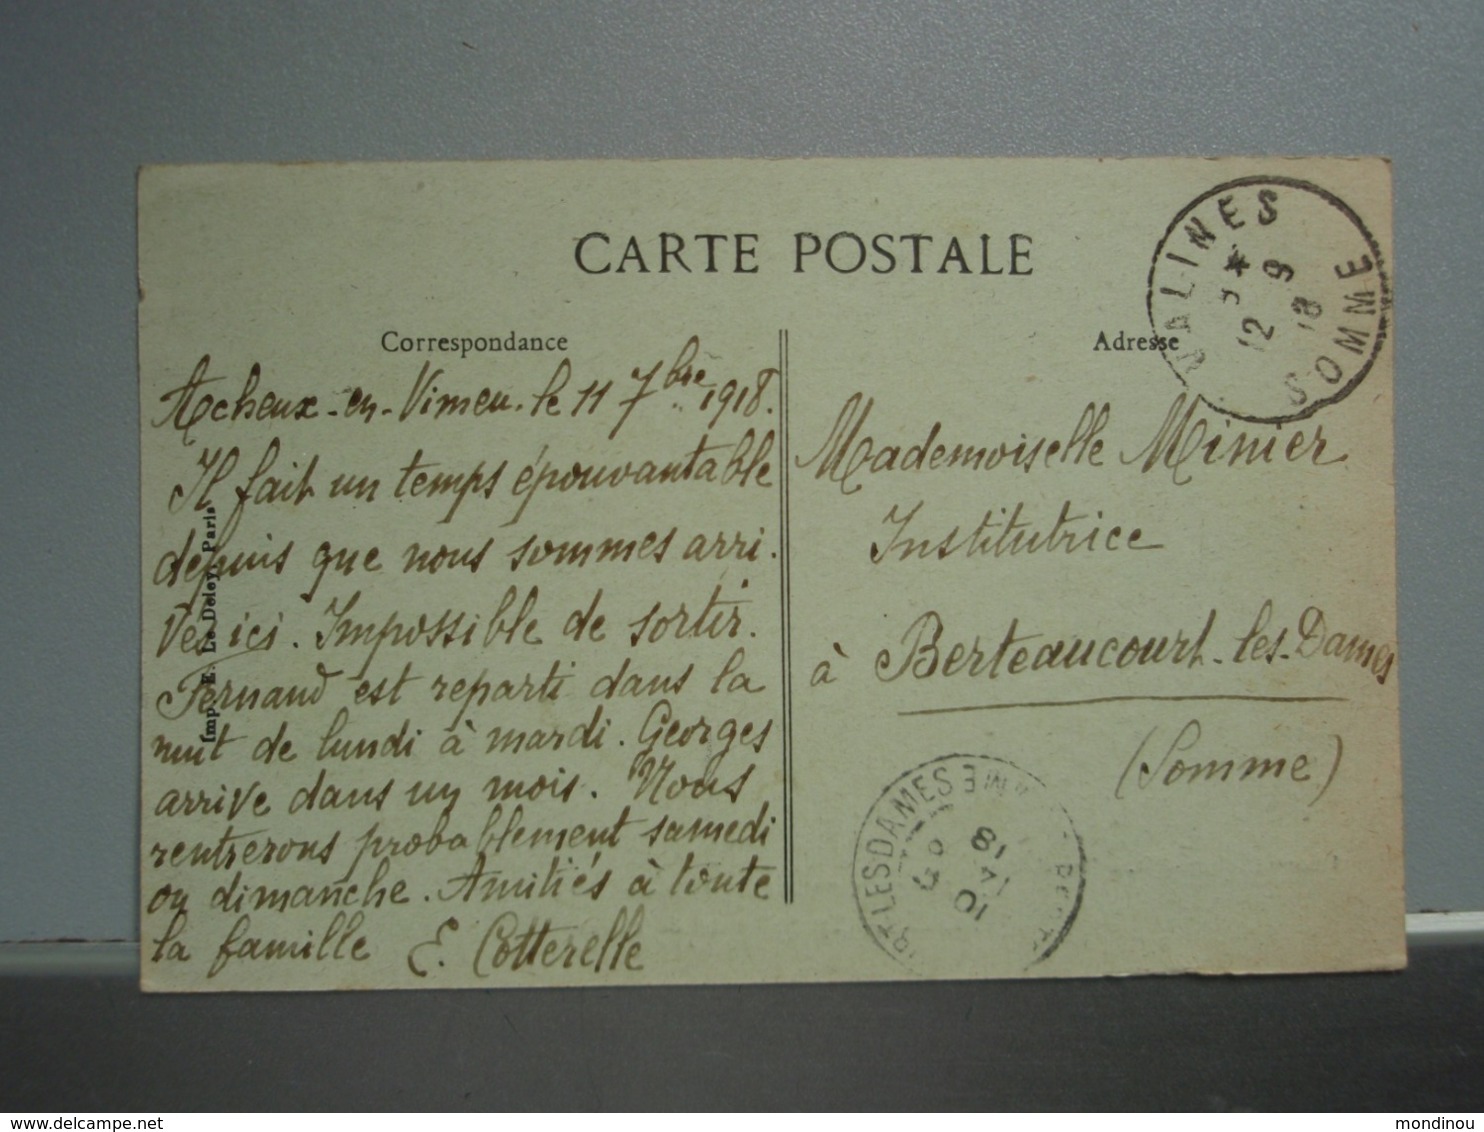 CARTE POSTALE
Correspondance
Adresse
VALINES
12 9 18
SOMME
Acheux-en-Vimeu. le 11 7bre 1918.
Il fait un temps épouvantable
depuis que nous sommes arri.
vés ici. Impossible de sortir.
Fernand est reparti dans la
nuit de lundi à mardi. Georges
arrive dans un mois. Nous
rentrerons probablement samedi
ou dimanche. Amitiés à toute
la famille E. Cotterelle
Imp. E. Le Deley, Paris
Mademoiselle Minier
Institutrice
à Berteaucourt-les-Dames
(Somme)
LESDAMES
delcampe.net
mondinou